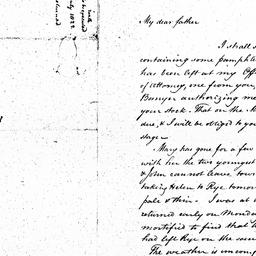 My dear father
I shall s
containing some pamphle
has been left at my Off
of Attorney, one from you,
Bunyer authorizing me
your stock. That on the
due, & I will be obliged to you
stage.
Mary has gone for a few
with her the two youngest
& John can not leave tow
taking Helen to Rye tomor
pale & thin. I was at
returned early on Monda
mortified to find that
had left Rye on the
The weather is uncom
July 1822